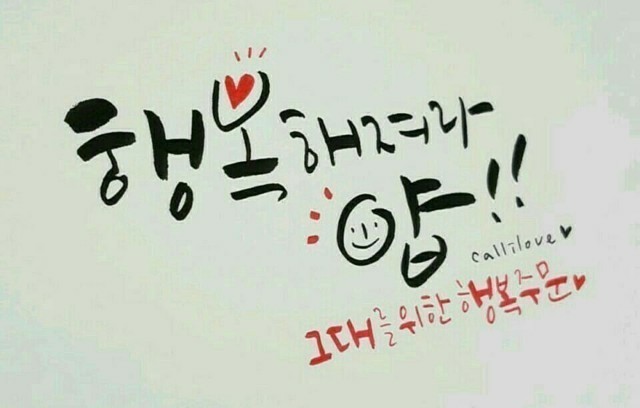 행복해져라
얍!!
callilove♥
그대를위한 행복주문♥